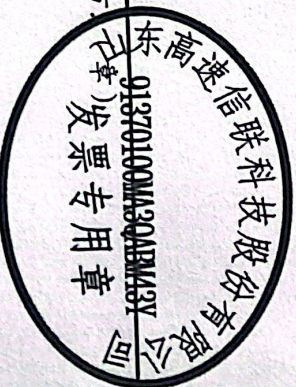 山东高速信联科技股份有限公司
91370100MA3QABWM3Y
发票专用章
章)